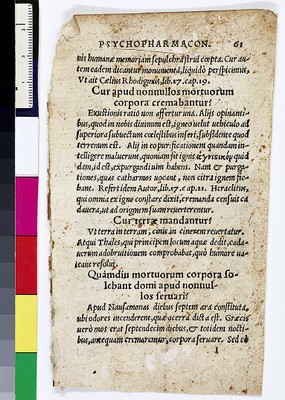 PSYCHOPHARMACON. 63
nis humanæ memoriam sepulchra struicœpta. Cur au-
tem eadem dicantur monumenta, liquidò perspicimus,
Vt ait Cælius Rhodiginus, lib.17.cap.19.
Cur apud nonnullos mortuorum
corpora cremabantur?
Exustionis ratio non affertur una. Alijs opinanti-
bus, quod in nobis divinum est, igneo velut vehiculo, ad
superiora subiectum cœlestibus inseri, subsidente quod
terrenum est. Alij in eo purificationem quandam in-
telligere maluerunt, quoniam sit ignis quid-
dam, id est, expurgandi vim habens. Nam & purga-
tiones, quas catharmos vocant, non citrà ignem fie-
bant. Refert idem Autor, lib.17.cap.21. Heraclitus,
qui omnia ex igne constare dixit, cremanda censuit ca
davera, ut ad originem suam reverterentur.
Cur terræ mandantur?
Vt terra in terram, cinis in cinerem revertatur.
Atqui Thales, qui principem locum aquæ dedit, cada-
verum adobruitionem comprobabat, quò humore va-
leant resolvi.
Quamdiu mortuorum corpora so-
lebant domi apud nonnul-
los servari?
Apud Nausamonas diebus septem ara constituta,
ubi odores incenderent, quæ acerra dicta est. Græcis
verò mos erat septendecim diebus, & totidem nocti-
bus, antequam cremarentur, corpora servare. Sed eò
I